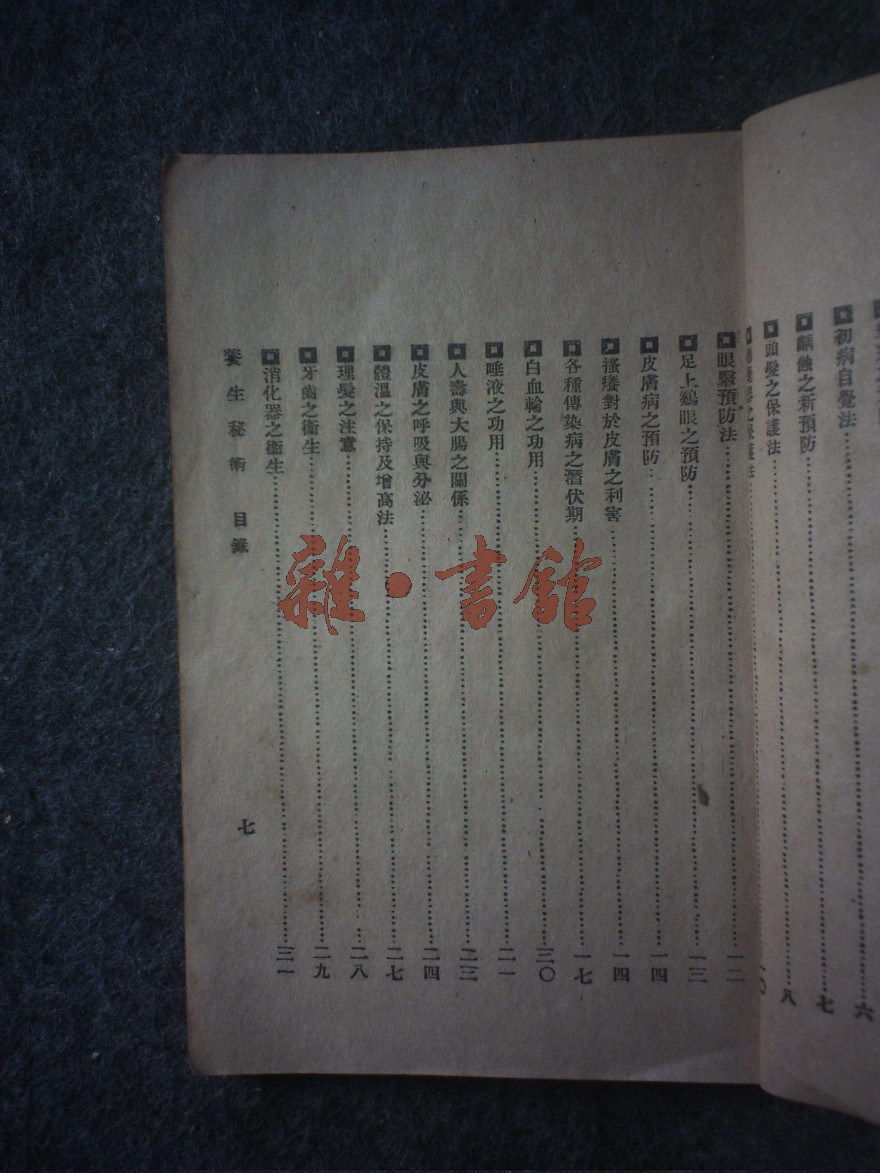 初病自覺法 六
齲蝕之新預防 七
頭髮之保護法 八
之保護法 一〇
眼醫預防法 一二
足上鷄眼之預防 一三
皮膚病之預防 一四
搔癢對於皮膚之利害 一四
各種傳染病之潛伏期 一七
白血輪之功用 三〇
唾液之功用 二一
人壽與大腸之關係 二三
皮膚之呼吸與分泌 二四
體溫之保持及增高法 二七
理髮之注意 二八
牙齒之衞生 二九
消化器之衞生 三一
養生秘術 目錄 七
雜·書館